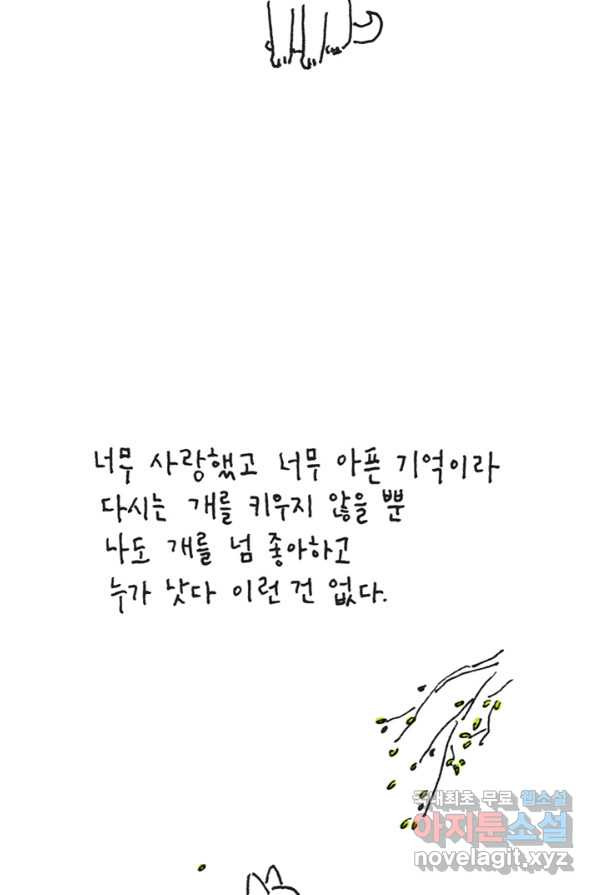 너무 사랑했고 너무 아픈 기억이라
다시는 개를 키우지 않을 뿐
나도 개를 넘 좋아하고
누가 낫다 이런 건 없다.
국내최초 무료 웹소설
아지툰소설
novelagit.xyz